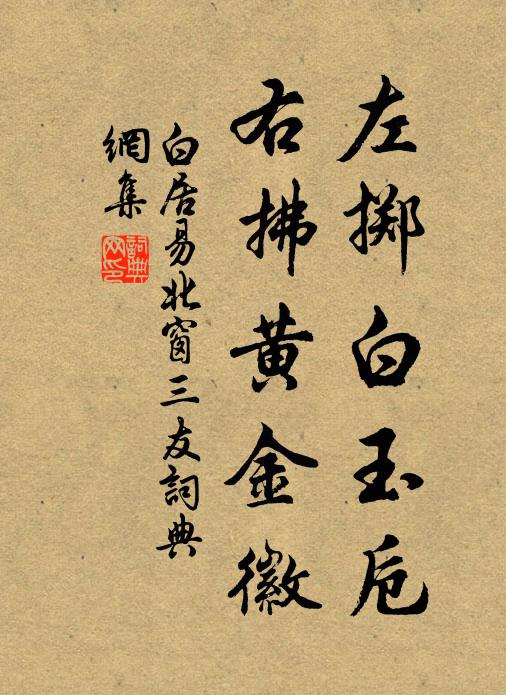 左擲白玉卮
右拂黄金徽
白居易北窗三友詞典
網集
詞典
网印